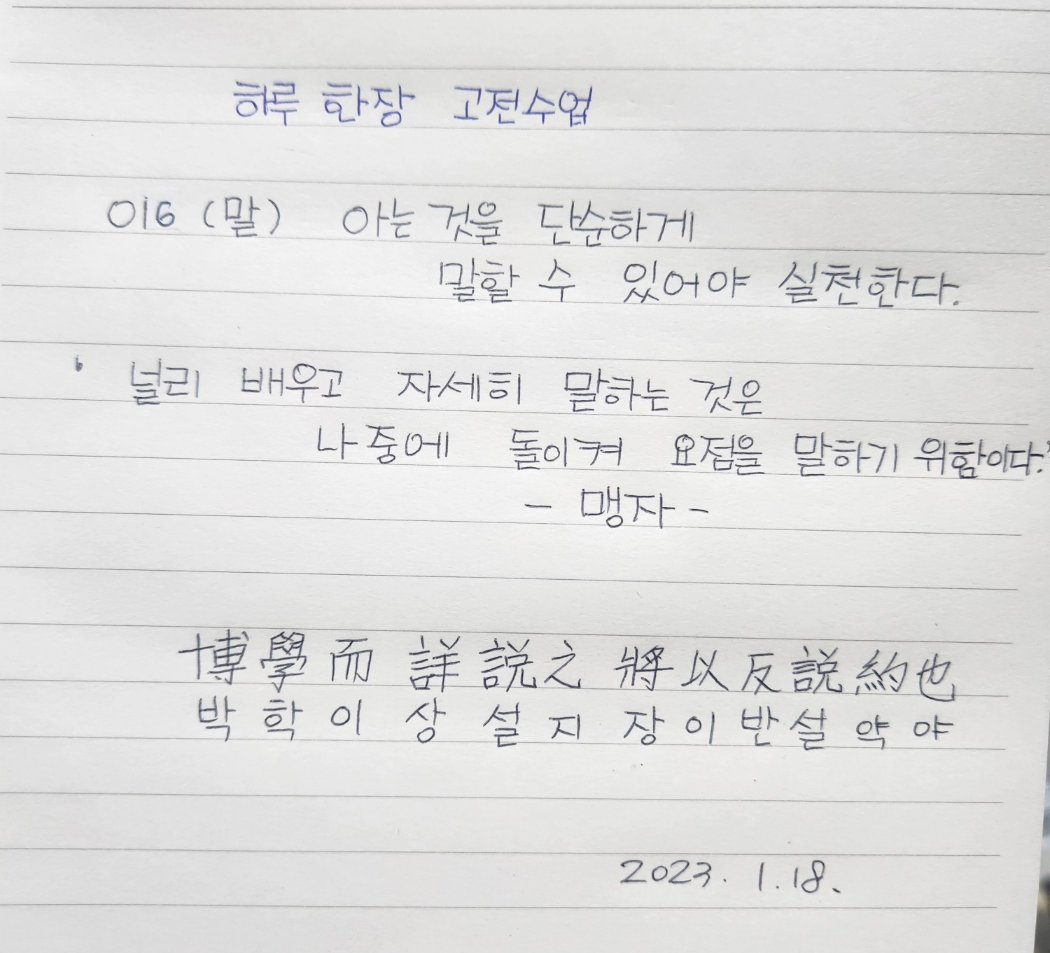 하루 한장 고전수업
016 (말) 아는 것을 단순하게
말할 수 있어야 실천한다.
' 널리 배우고 자세히 말하는 것은
나중에 돌이켜 요점을 말하기 위함이다.'
- 맹자 -
博學而詳説之將以反説約也
박학이상설지장이반설약야
2023. 1.18.